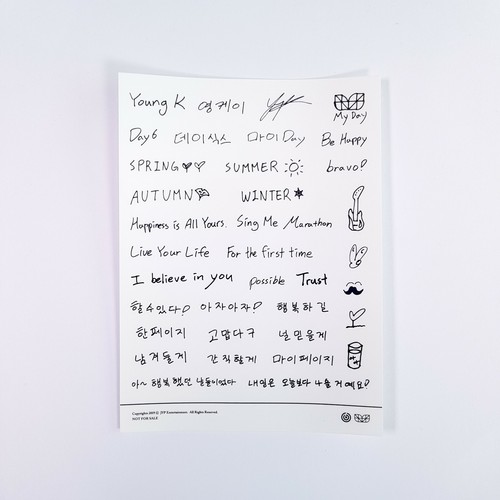 Young K 영케이
My Day
Day6 데이식스 마이Day Be Happy
SPRING SUMMER bravo!
AUTUMN WINTER
Happiness is All Yours. Sing Me Marathon
Live Your Life For the first time
I believe in you possible Trust
할 수 있다! 아자아자! 행복하길
한페이지 고맙다구 널 믿을게
남겨둘게 간직할게 마이페이지
아~ 행복했던 날들이었다 내일은 오늘보다 나을 거예요!
Copyrights 2019 ⓒ JYP Entertainment. All Rights Reserved.
NOT FOR SALE